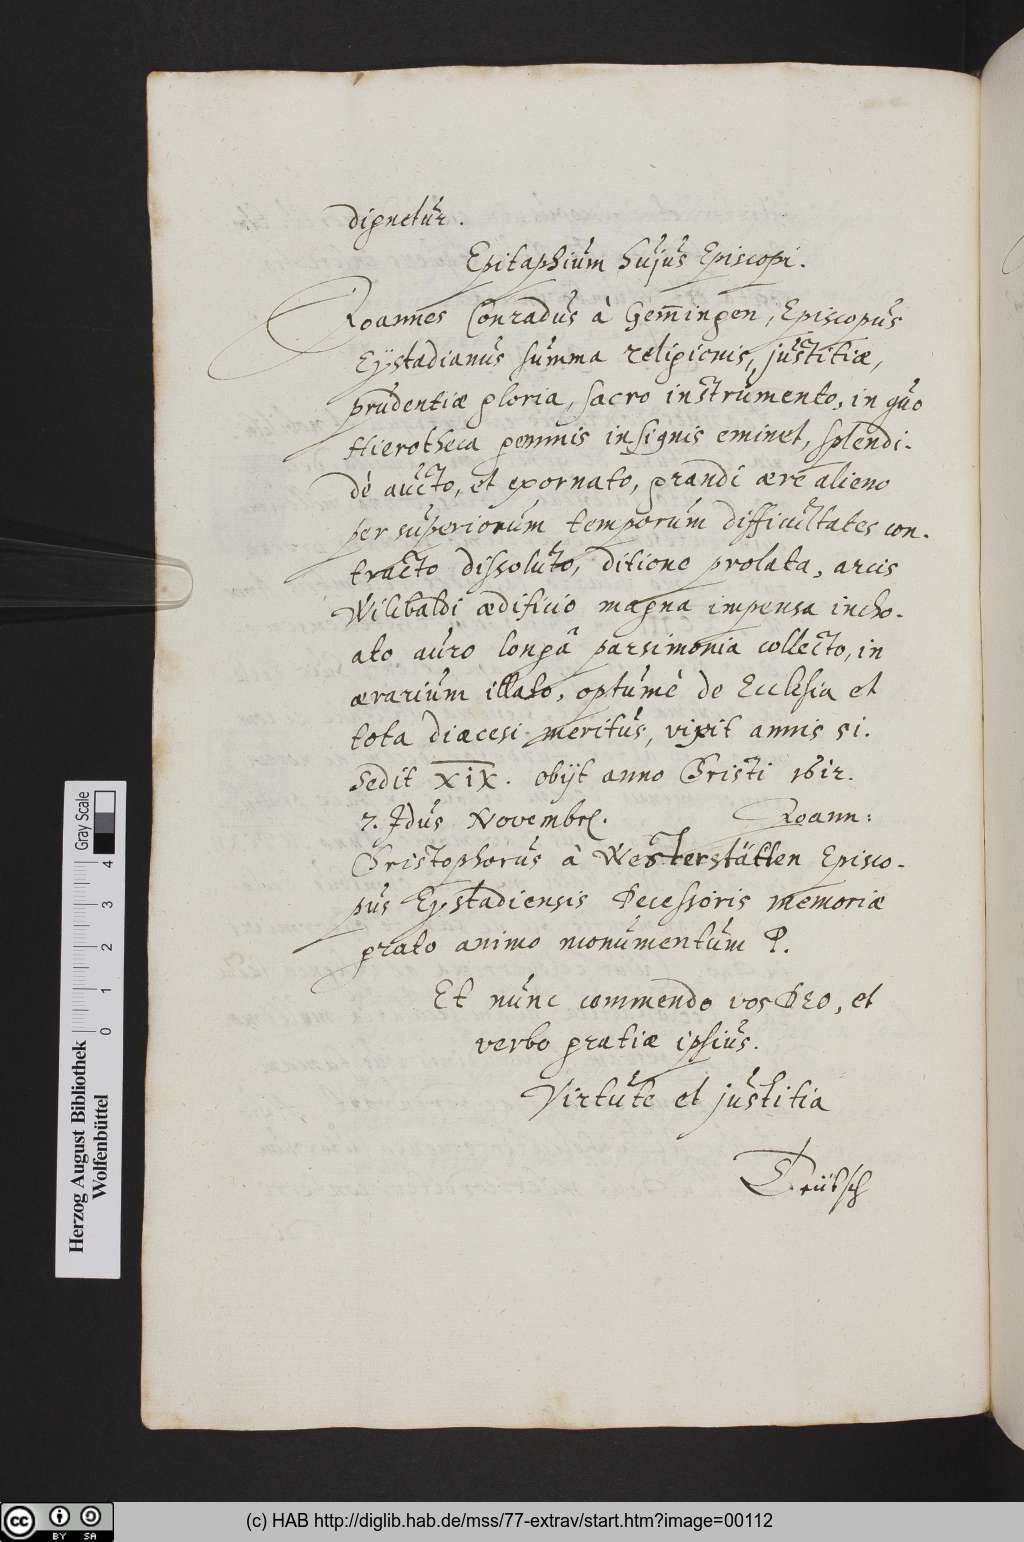 dignetur.
Epitaphium hujus Episcopi.
Joannes Conradus à Gem̄ingen, Episcopus
Eystadianus summa religionis, justitiæ,
prudentiæ gloria, sacro instrumento, in quo
Hierotheca gemmis insignis eminet, splendi-
dè aucto, et exornato, grandi ære alieno
per superiorum temporum difficultates con-
tracto dissoluto, ditione prolata, arcis
Wilibaldi ædificio magna impensa incho-
ato auro longâ parsimonia collecto, in
ærarium illato, optumè de Ecclesia et
tota diœcesi meritus, vixit annis 51.
sedit XIX. obijt anno Christi 1612.
7. Idus Novembr. Joann:
Christophorus à Westerstätten Episco-
pus Eystadiensis Decessoris memoriæ
grato animo monumentum P.
Et nunc commendo vos DEO, et
verbo gratiæ ipsius.
Virtute et justitia
Teütsch
Herzog August Bibliothek
Wolfenbüttel
Gray Scale
0 1 2 3 4
cc BY SA
(c) HAB http://diglib.hab.de/mss/77-extrav/start.htm?image=00112